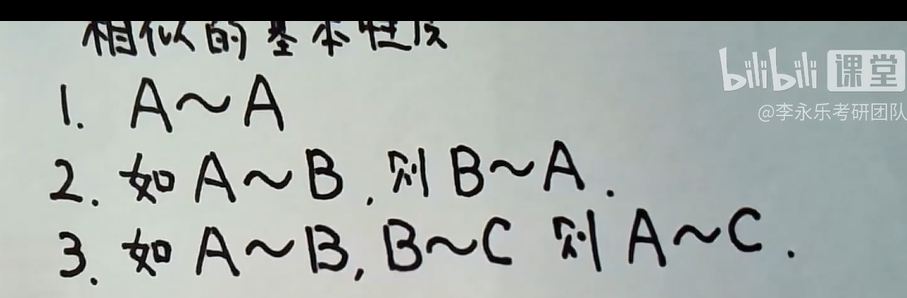 相似的基本性质
1. A~A
2. 如A~B,则B~A.
3. 如A~B,B~C 则A~C.
bilibili课堂
@李永乐考研团队